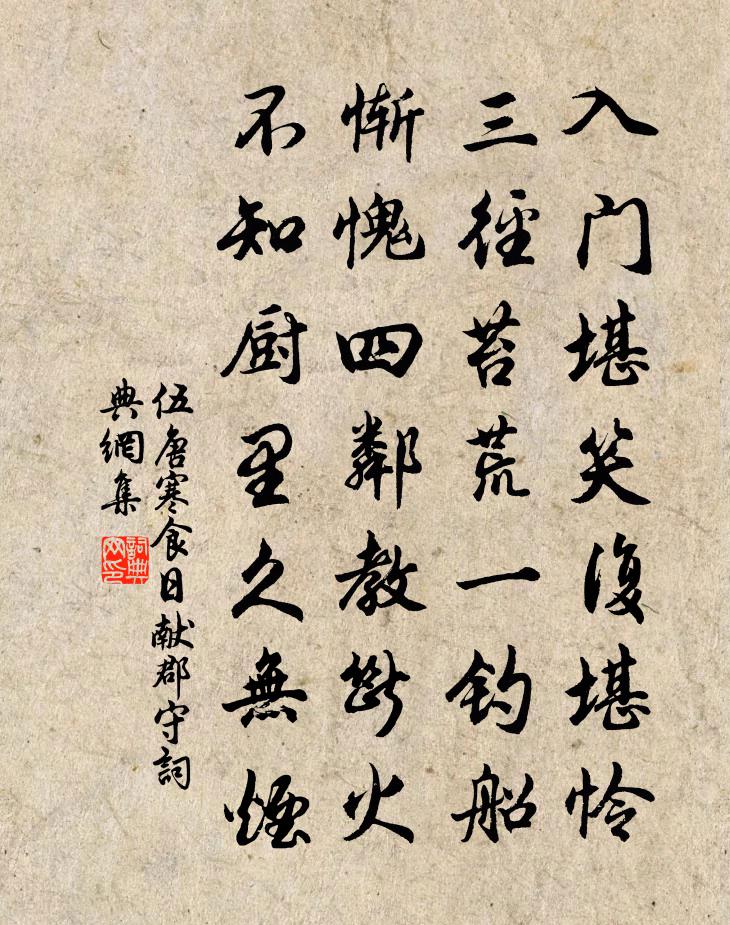 入门堪笑復堪怜
三径苔荒一钓船
惭愧四鄰教断火
不知厨里久無煙
伍唐寒食日献郡守詞
典網集
詞典网印